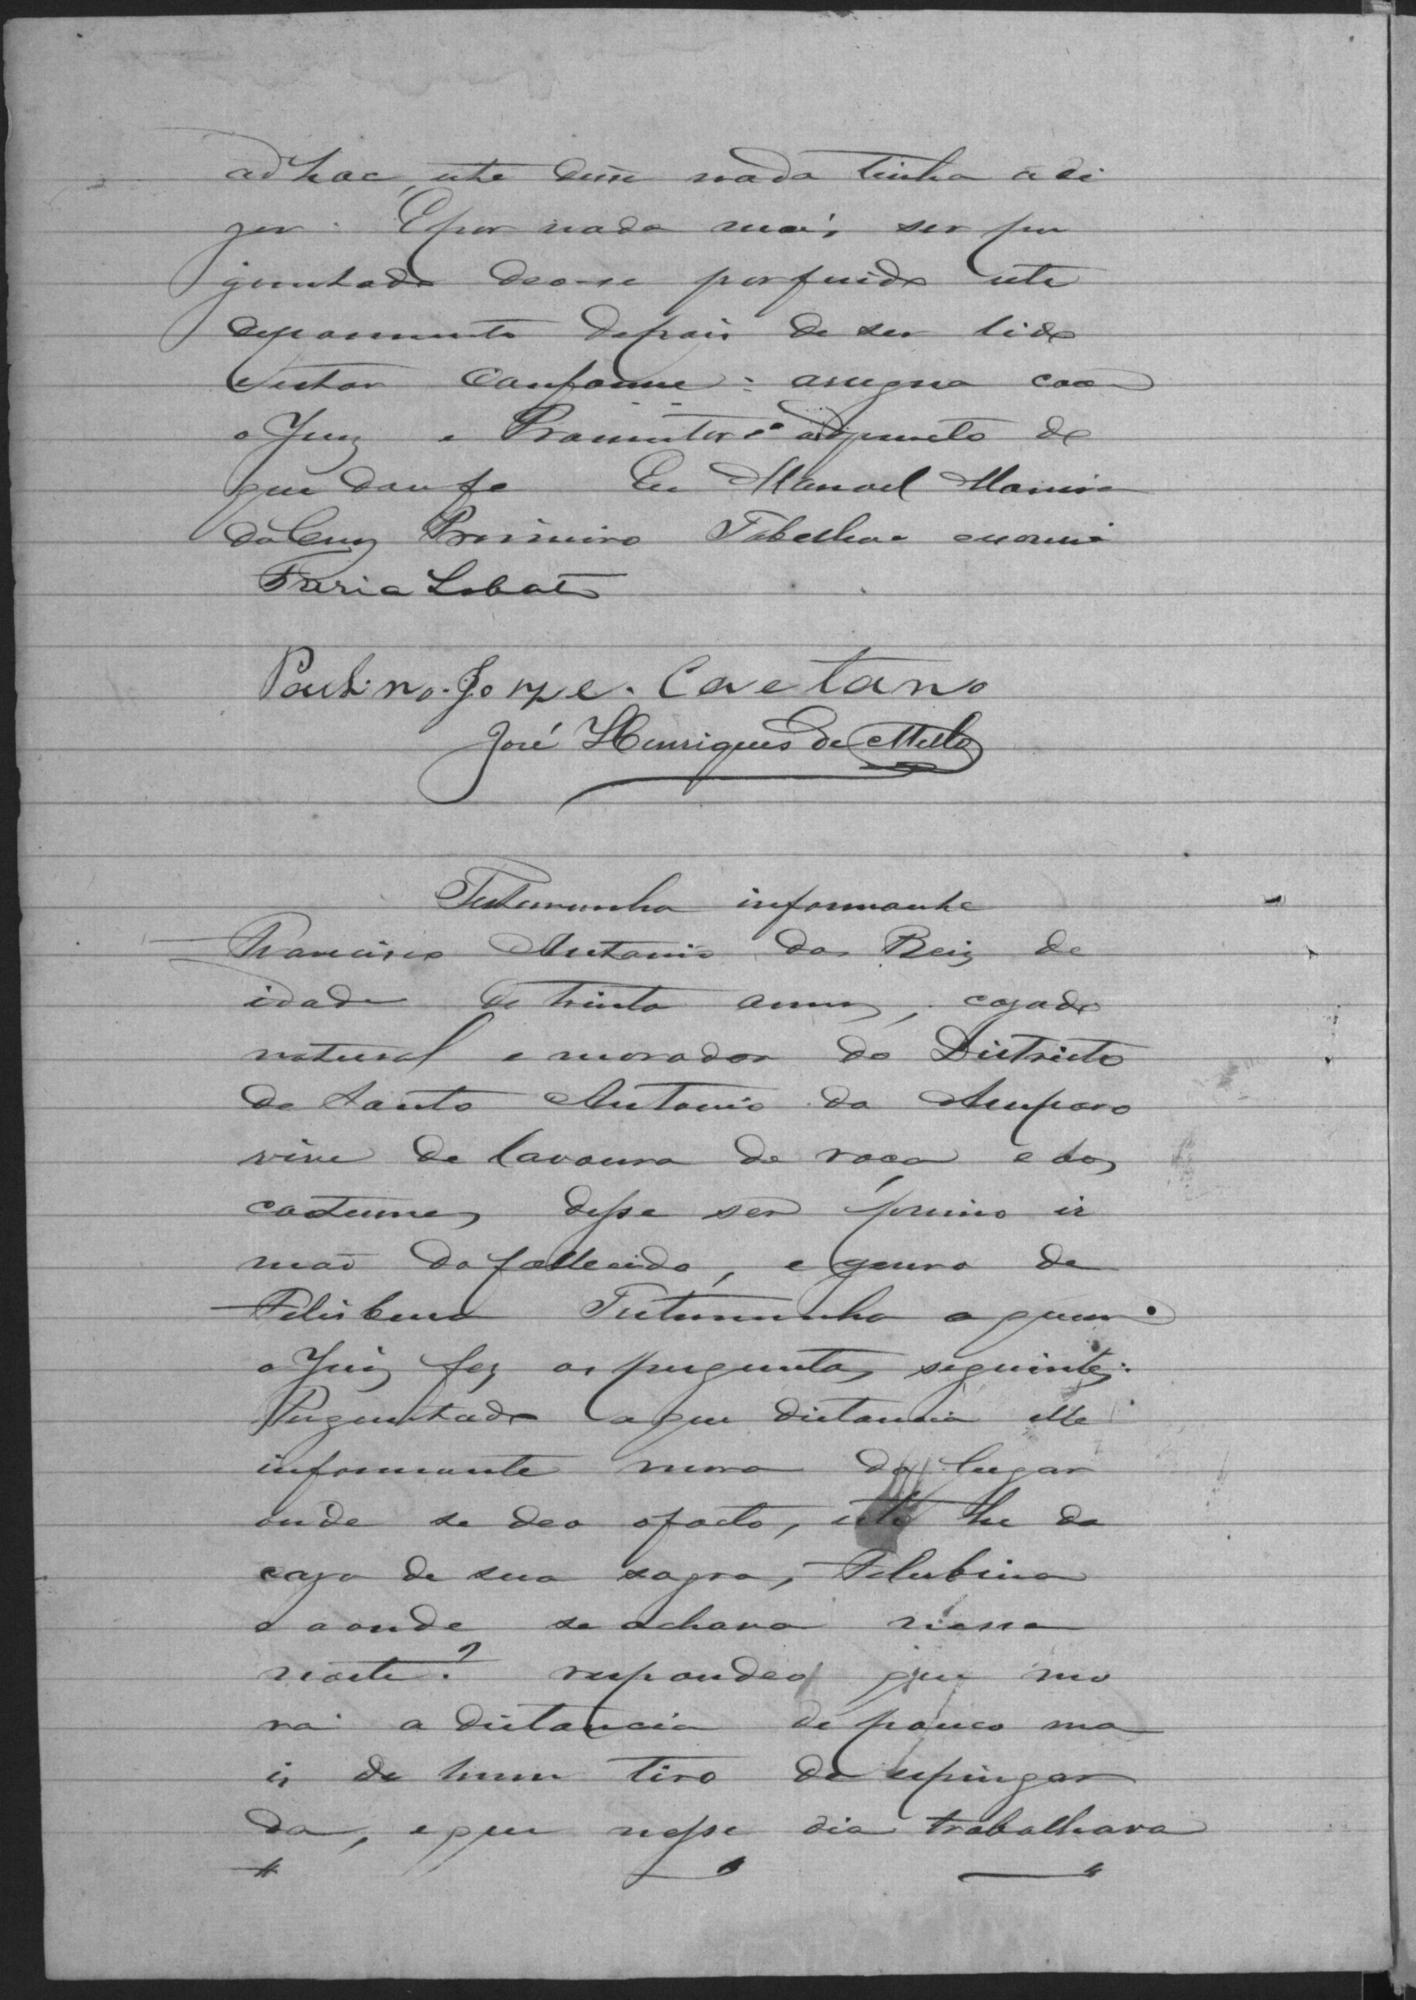 ad hoc, este disse nada tinha a di
zer. E por nada mais ser per
guntado deo-se por findo este
depoimento depois de ser lido
e estar conforme: assigna com
o Juiz e Promotor adjuncto do
que dou fe Eu Manoel Moreira
da Cruz Primeiro Tabelliao escrevi
Faria Lobato
Paulino Jorge Caetano
José Henriques de Mello
Testemunha informante
Francisco Antonio dos Reis de
idade de trinta annos, cazado
natural e morador do Districto
de Santo Antonio do Amparo
vive de lavoura de roca e dos
costumes disse ser primo ir
maõ do fallecido, e genro de
Felisbina Testemunha a quem
o Juiz fez as perguntas seguintes:
Perguntado a que distancia elle
informante mora do lugar
onde se deo o facto, isto he da
caza de sua sogra, Felisbina
e aonde se achava nessa
noite? respondeo que mo
ra a distancia de pouco ma
is de hum tiro de espingar
da, e que nesse dia trabalhava